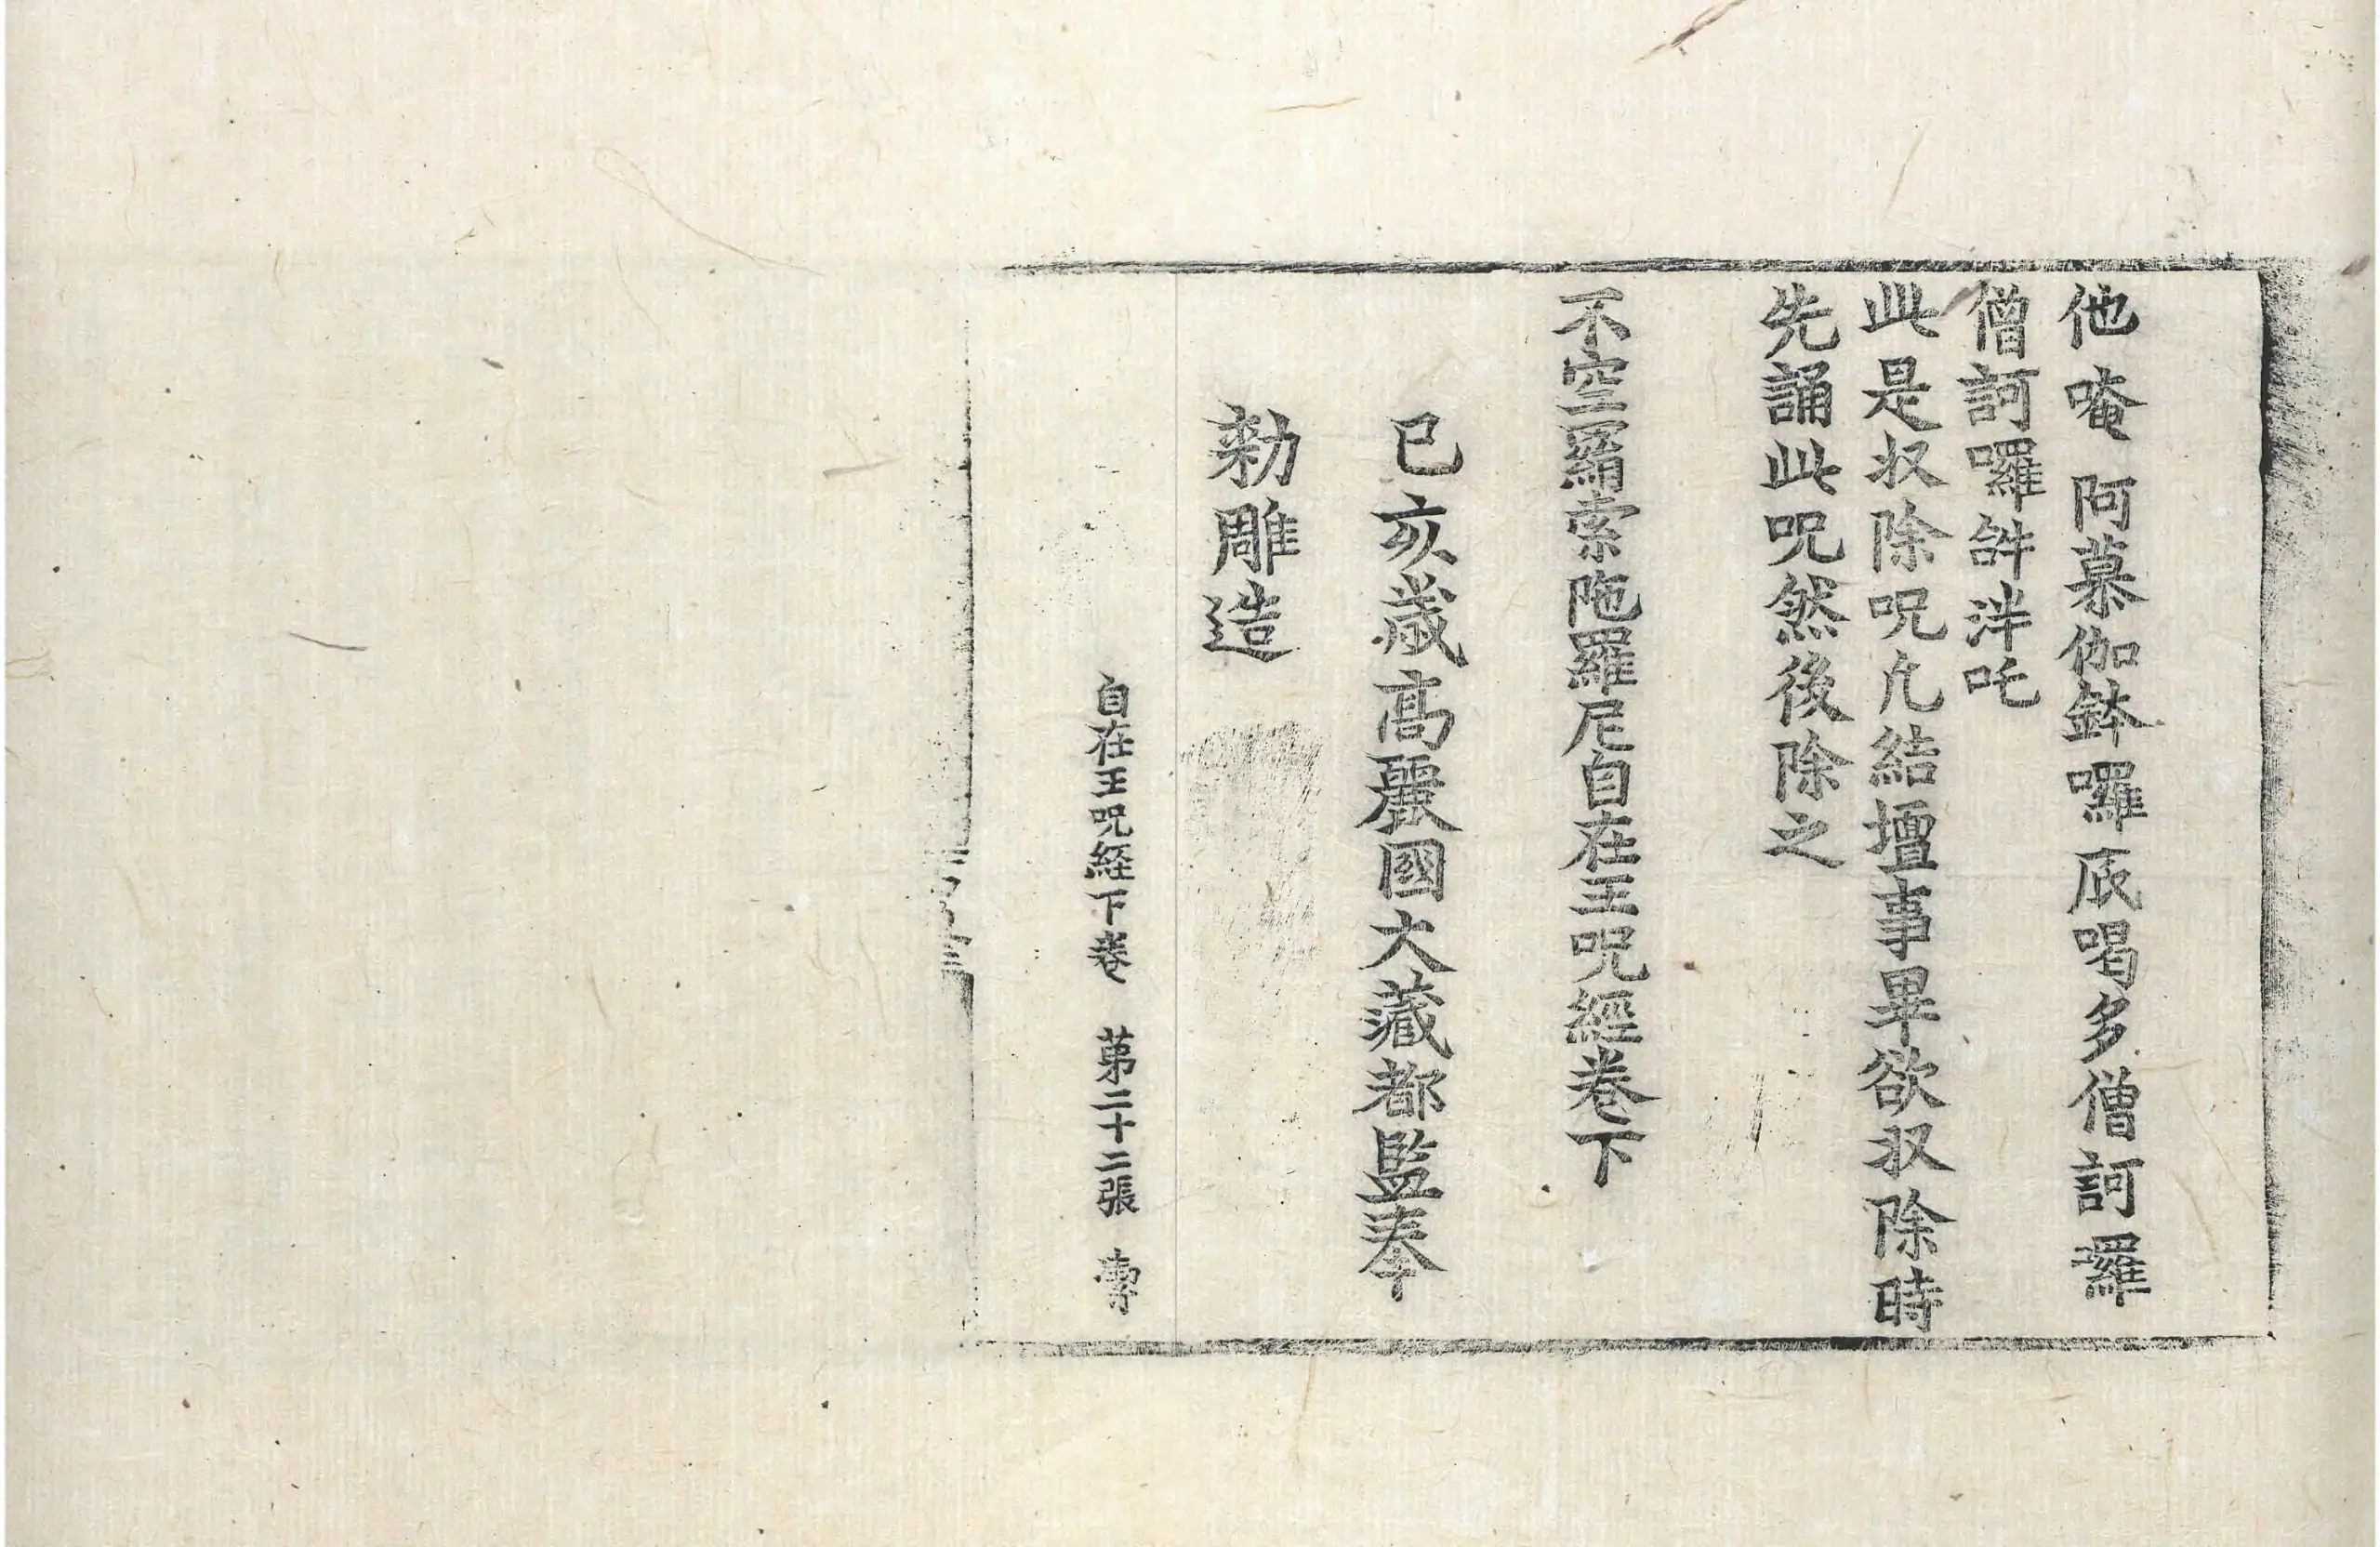 他唵阿慕伽鉢囉底喝多僧訶囉
僧訶囉𤙖泮吒
此是収除呪凢結壇事畢欲収除時
先誦此呪然後除之
不空羂索陁羅尼自在王呪經卷下
己亥歲高麗國大藏都監奉
勑雕造
自在王呪経下卷 第二十二張